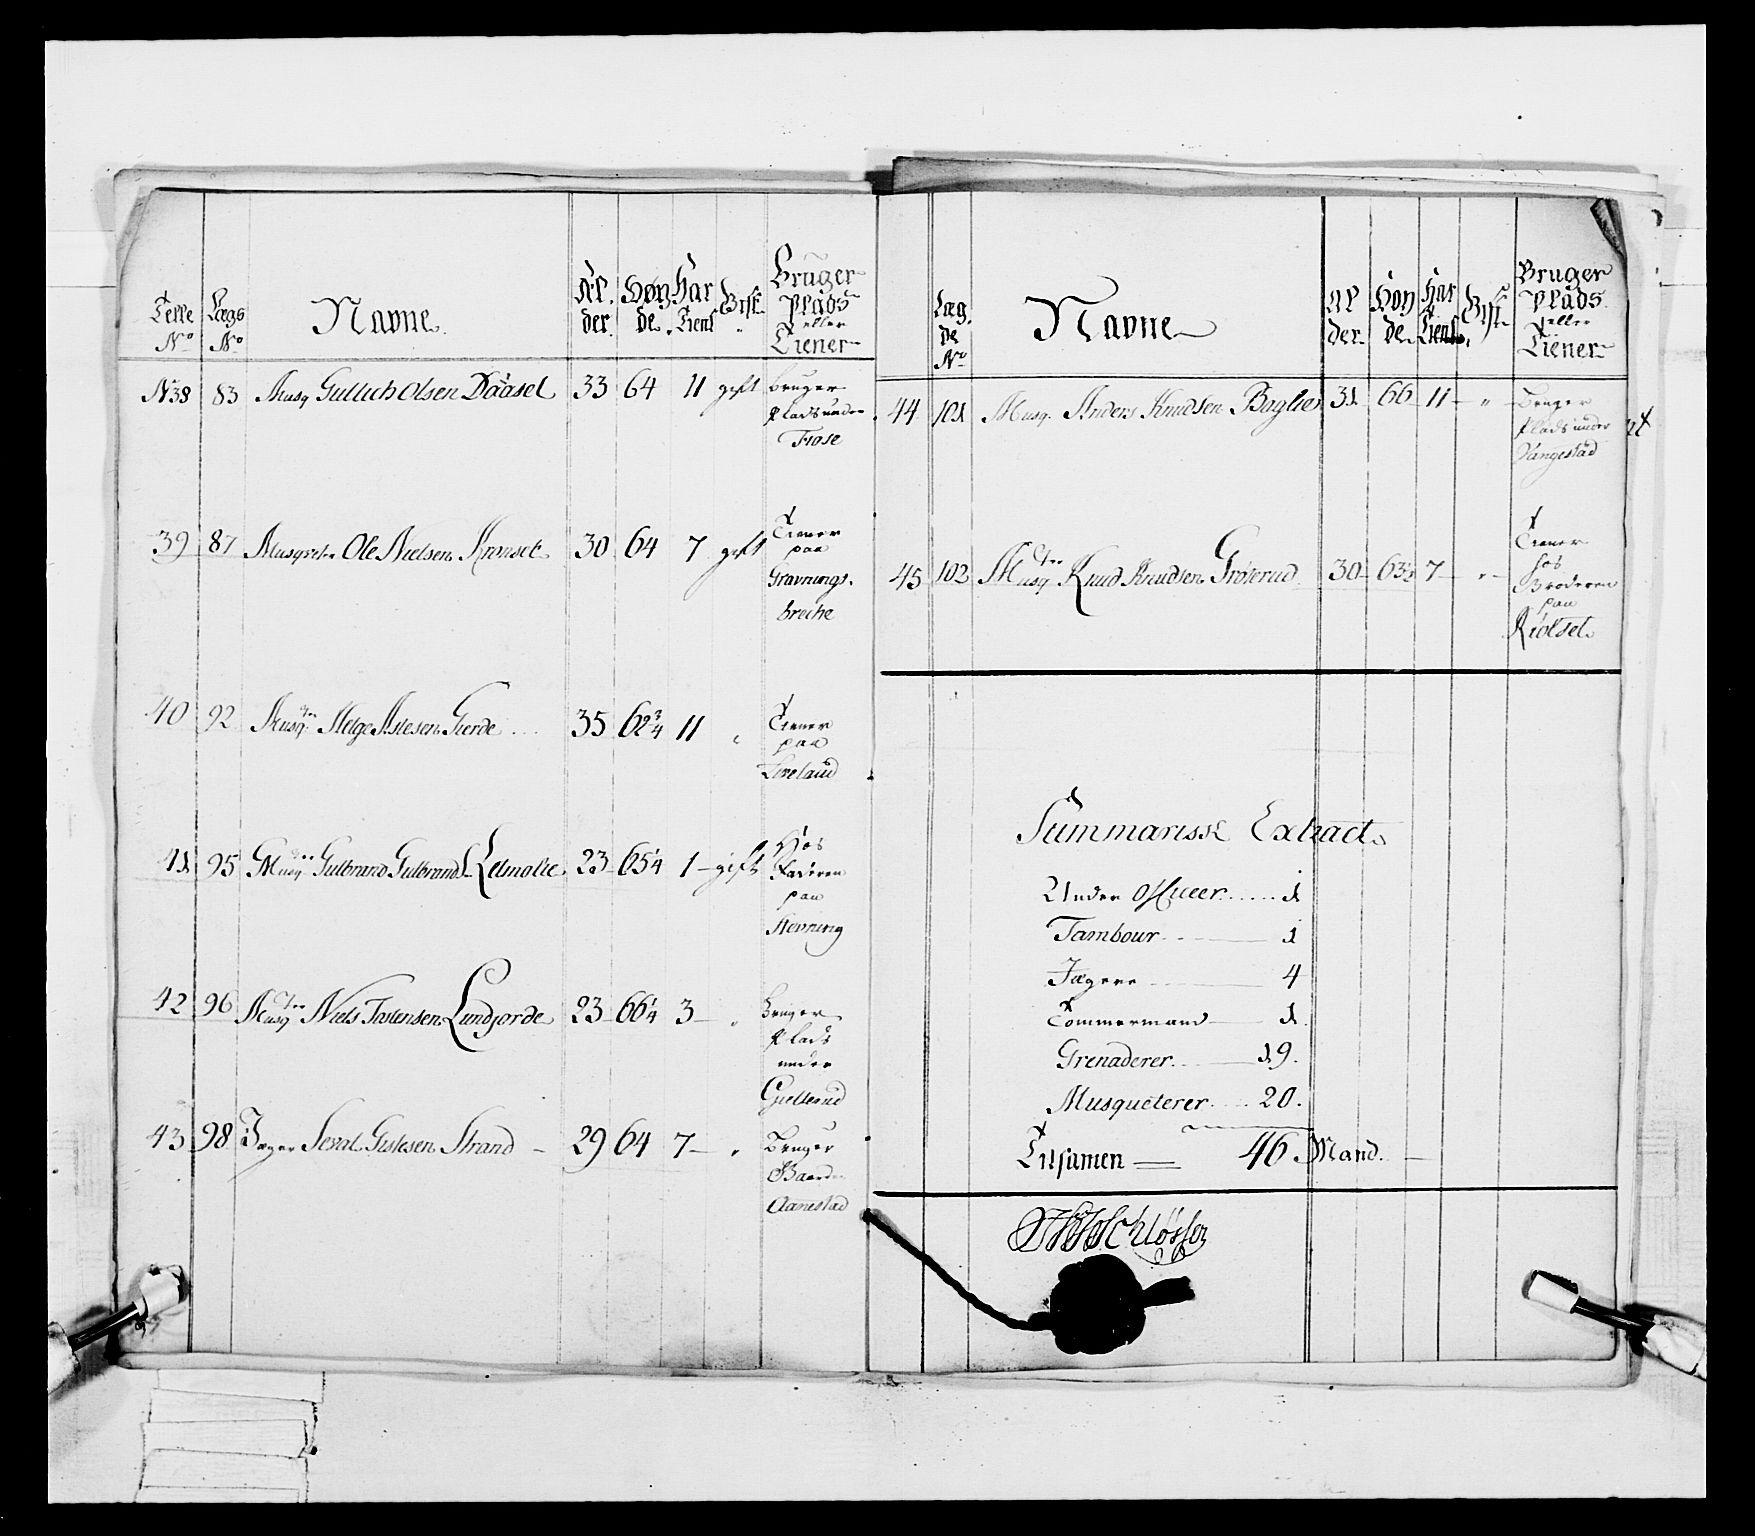 Telle No Lægs No Navne. Al. der. Høy de. Har Tient Gift. Bruger Plads eller Tiener
No 38 83 Musq Gulich Olsen Daasel 33 64 11 gift Bruger
Plads under
Fiose
39 87 Musqveter Ole Nielsen Kronset 30 64 7 gift Tiener
paa
Gravnings-
breche
40 92 Musq: Helge Aslesen Gierde 35 62 3/4 11 " Tiener
paa
41 95 Musq Gulbrand Gulbrands: 23 65 1/4 1 gift Hos
Faderen
paa
Stevning
42 96 Musq Niels Torstensen Lundjorde 23 66 1/4 3 " Bruger
Plads
under
Gielterud
43 98 Jæger Seval Gislesen Strand 29 64 7 " Bruger
Gaarden
Aanestad
Læg. de No Navne Al der Høy de Har Tient Gift Bruger Plads eller Tiener
44 101 Musq. Anders Knudsen Baglie 31 66 11 " Bruger
Plads under
Vangestad
45 102 Musq Knud Knudsen Grøterud 30 63 1/2 7 " Tiener
hos
Broderen
paa
Kiølset
Summarisk Extract
Under Officeer 1
Tambour 1
Jægere 4
Tømmermand 1
Grenaderer 19.
Musqueterer 20.
Tilsamen 46 Mand.
Schlösser